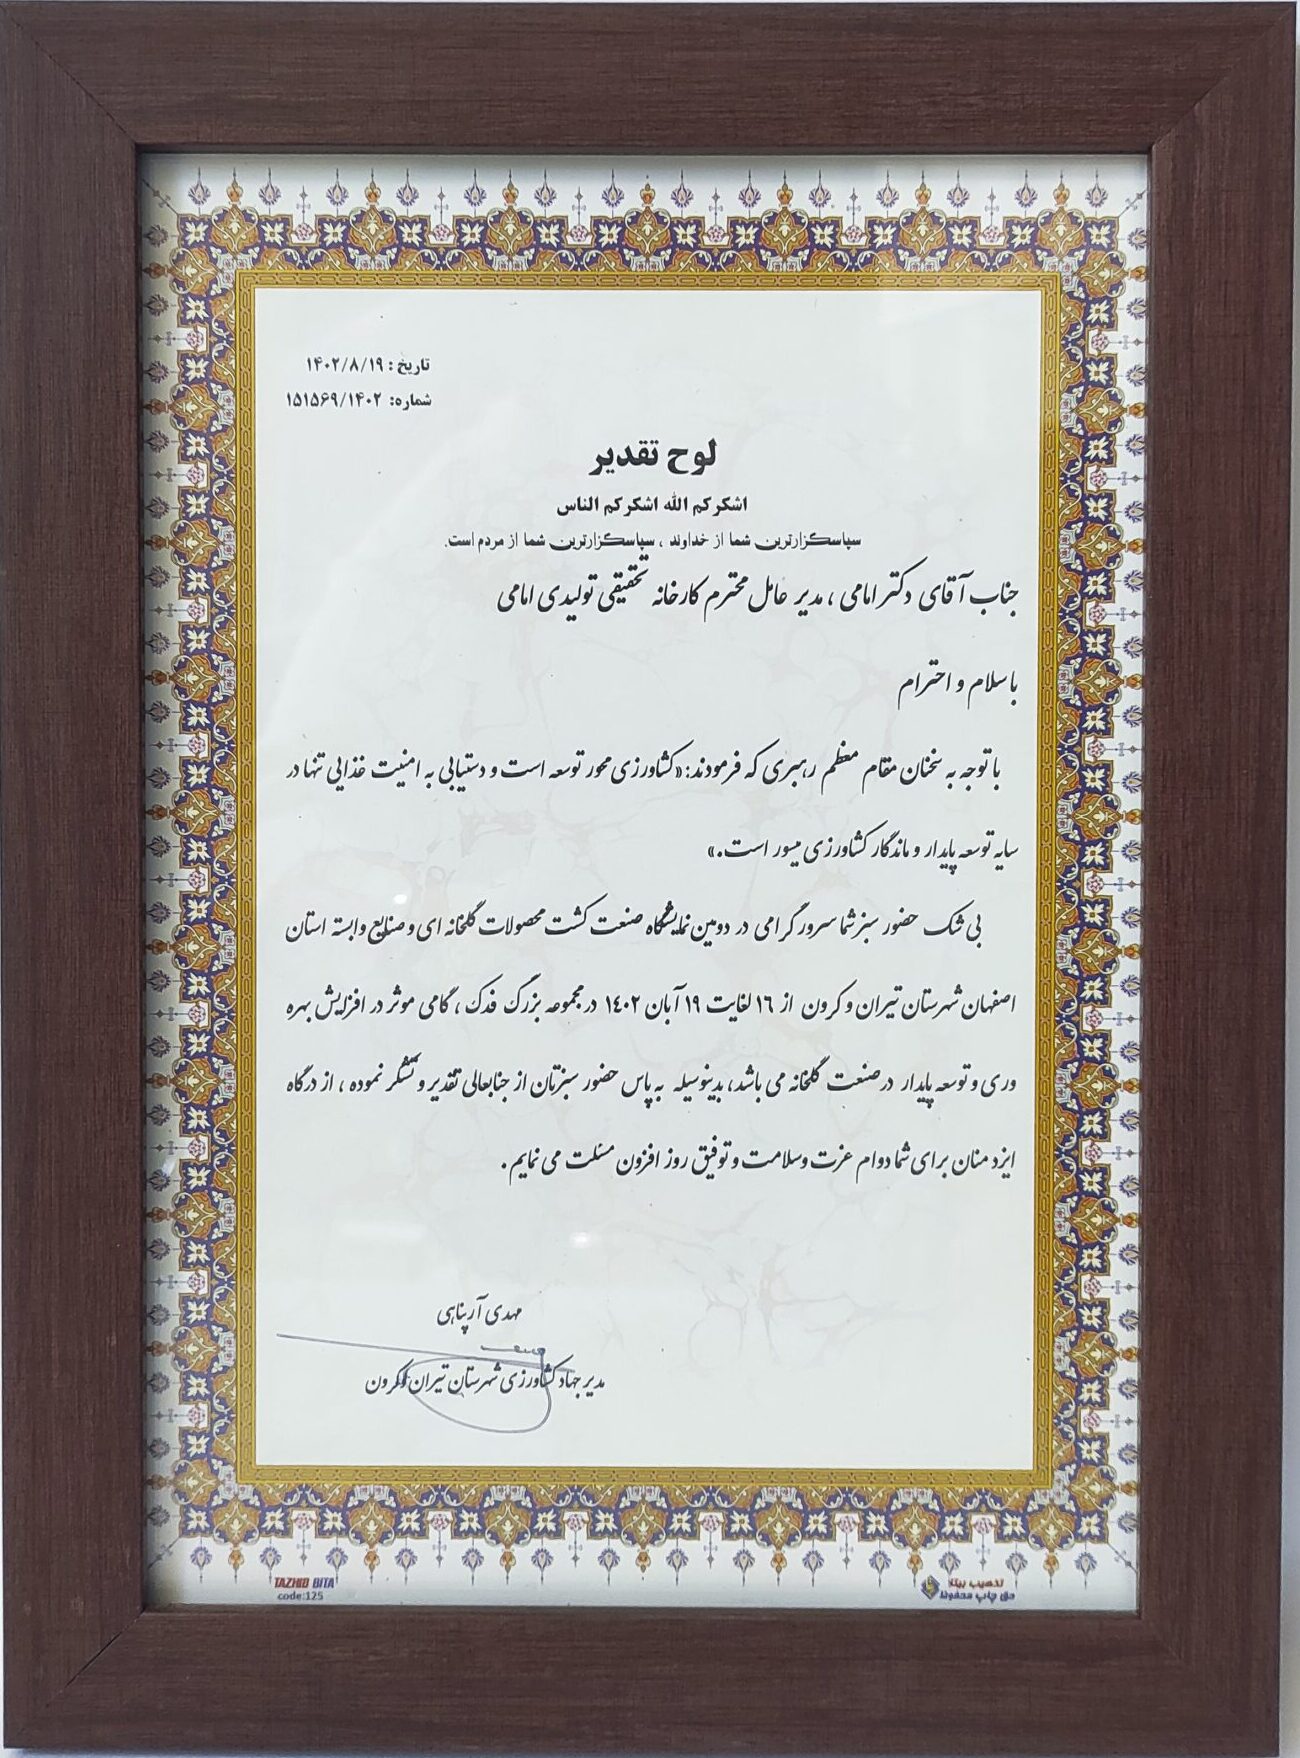 تاریخ : ۱۴۰۲/۸/۱۹
شماره: ۱۵۱۵۶۹/۱۴۰۲
لوح تقدیر
اشکرکم الله اشکرکم الناس
سپاسگزارترین شما از خداوند ، سپاسگزارترین شما از مردم است.
جناب آقای دکتر امامی ، مدیر عامل محترم کارخانه تحقیقی تولیدی امامی
با سلام و احترام
با توجه به سخنان مقام معظم رهبری که فرمودند: «کشاورزی محور توسعه است و دستیابی به امنیت غذایی تنها در
سایه توسعه پایدار و ماندگار کشاورزی میسور است.»
بی شک حضور سبز شما سرور گرامی در دومین نمایشگاه صنعت کشت محصولات گلخانه ای و صنایع وابسته استان
اصفهان شهرستان تیران و کرون از ۱۶ لغایت ۱۹ آبان ۱۴۰۲ در مجموعه بزرگ فدک ، گامی موثر در افزایش بهره
وری و توسعه پایدار در صنعت گلخانه می باشد، بدینوسیله به پاس حضور سبزتان از جنابعالی تقدیر و تشکر نموده ، از درگاه
ایزد منان برای شما دوام عزت و سلامت و توفیق روز افزون مسئلت می نمایم .
مهدی آرپناهی
مدیر جهاد کشاورزی شهرستان تیران و کرون
TAZHIB BITA
code:125
تذهیب بیتا
حق چاپ محفوظ